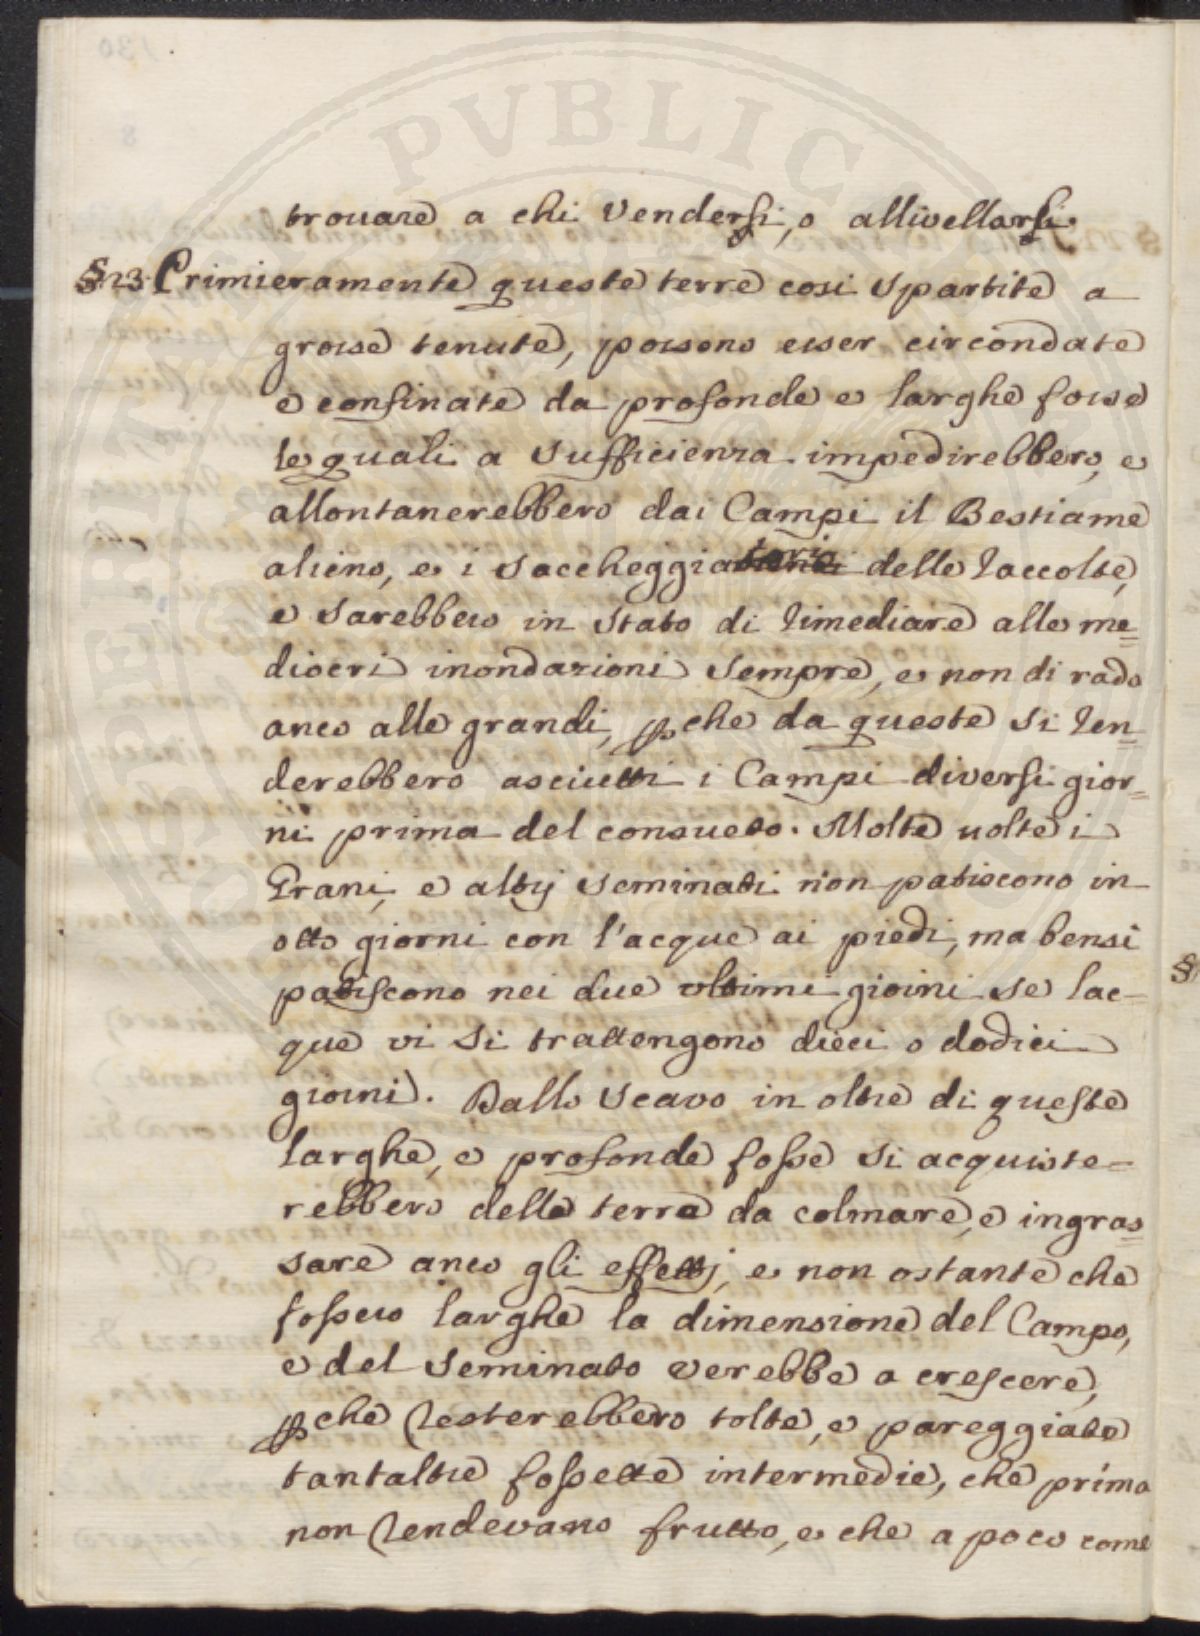 trovare a chi vendersi, o allivellarsi.
§ 23. Primieramente queste terre cosi spartite a
grosse tenute, possono esser circondate
e confinate da profonde e larghe fosse
le quali a sufficienza impedirebbero, e
allontanerebbero dai Campi il Bestiame
alieno, e i saccheggiatori delle raccolte,
e sarebbero in stato di rimediare alle me=
diocri inondazioni sempre, e non di rado
anco alle grandi, pche da queste si ren=
derebbero asciutti i Campi diversi gior=
ni prima del consueto. Molte volte i
Grani, e altrj seminati non patiscono in
otto giorni con l'acque ai piedi, ma bensi
patiscono nei due ultimi giorni se lac=
que vi si trattengono dieci o dodici
giorni. Dallo scavo in oltre di queste
larghe, e profonde fosse si acquiste=
rebbero delle terre da colmare, e ingras=
sare anco gli effettj, e non ostante che
fossero larghe la dimensione del Campo,
e del seminato verebbe a crescere,
pche resterebbero tolte, e pareggiate
tantaltre fossette intermedie, che prima
non rendevano frutto, e che a poco come